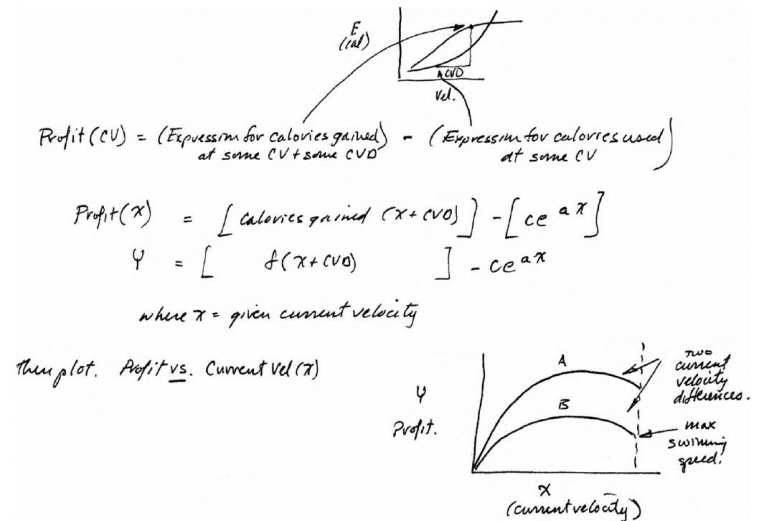 E
(cal)
CVD
Vel.
Profit (CV) = (Expression for calories gained) - (Expression for calories used)
at some CV + some CVD
at some CV
Profit (x) = [calories gained (x + CVD)] - [ce^ax]
Y = [ f(x + CVD) ] - ce^ax
where x = given current velocity
Then plot. Profit vs. Current Vel (x)
Y
Profit.
A
B
two
current
velocity
differences.
max
swimming
speed.
x
(current velocity)